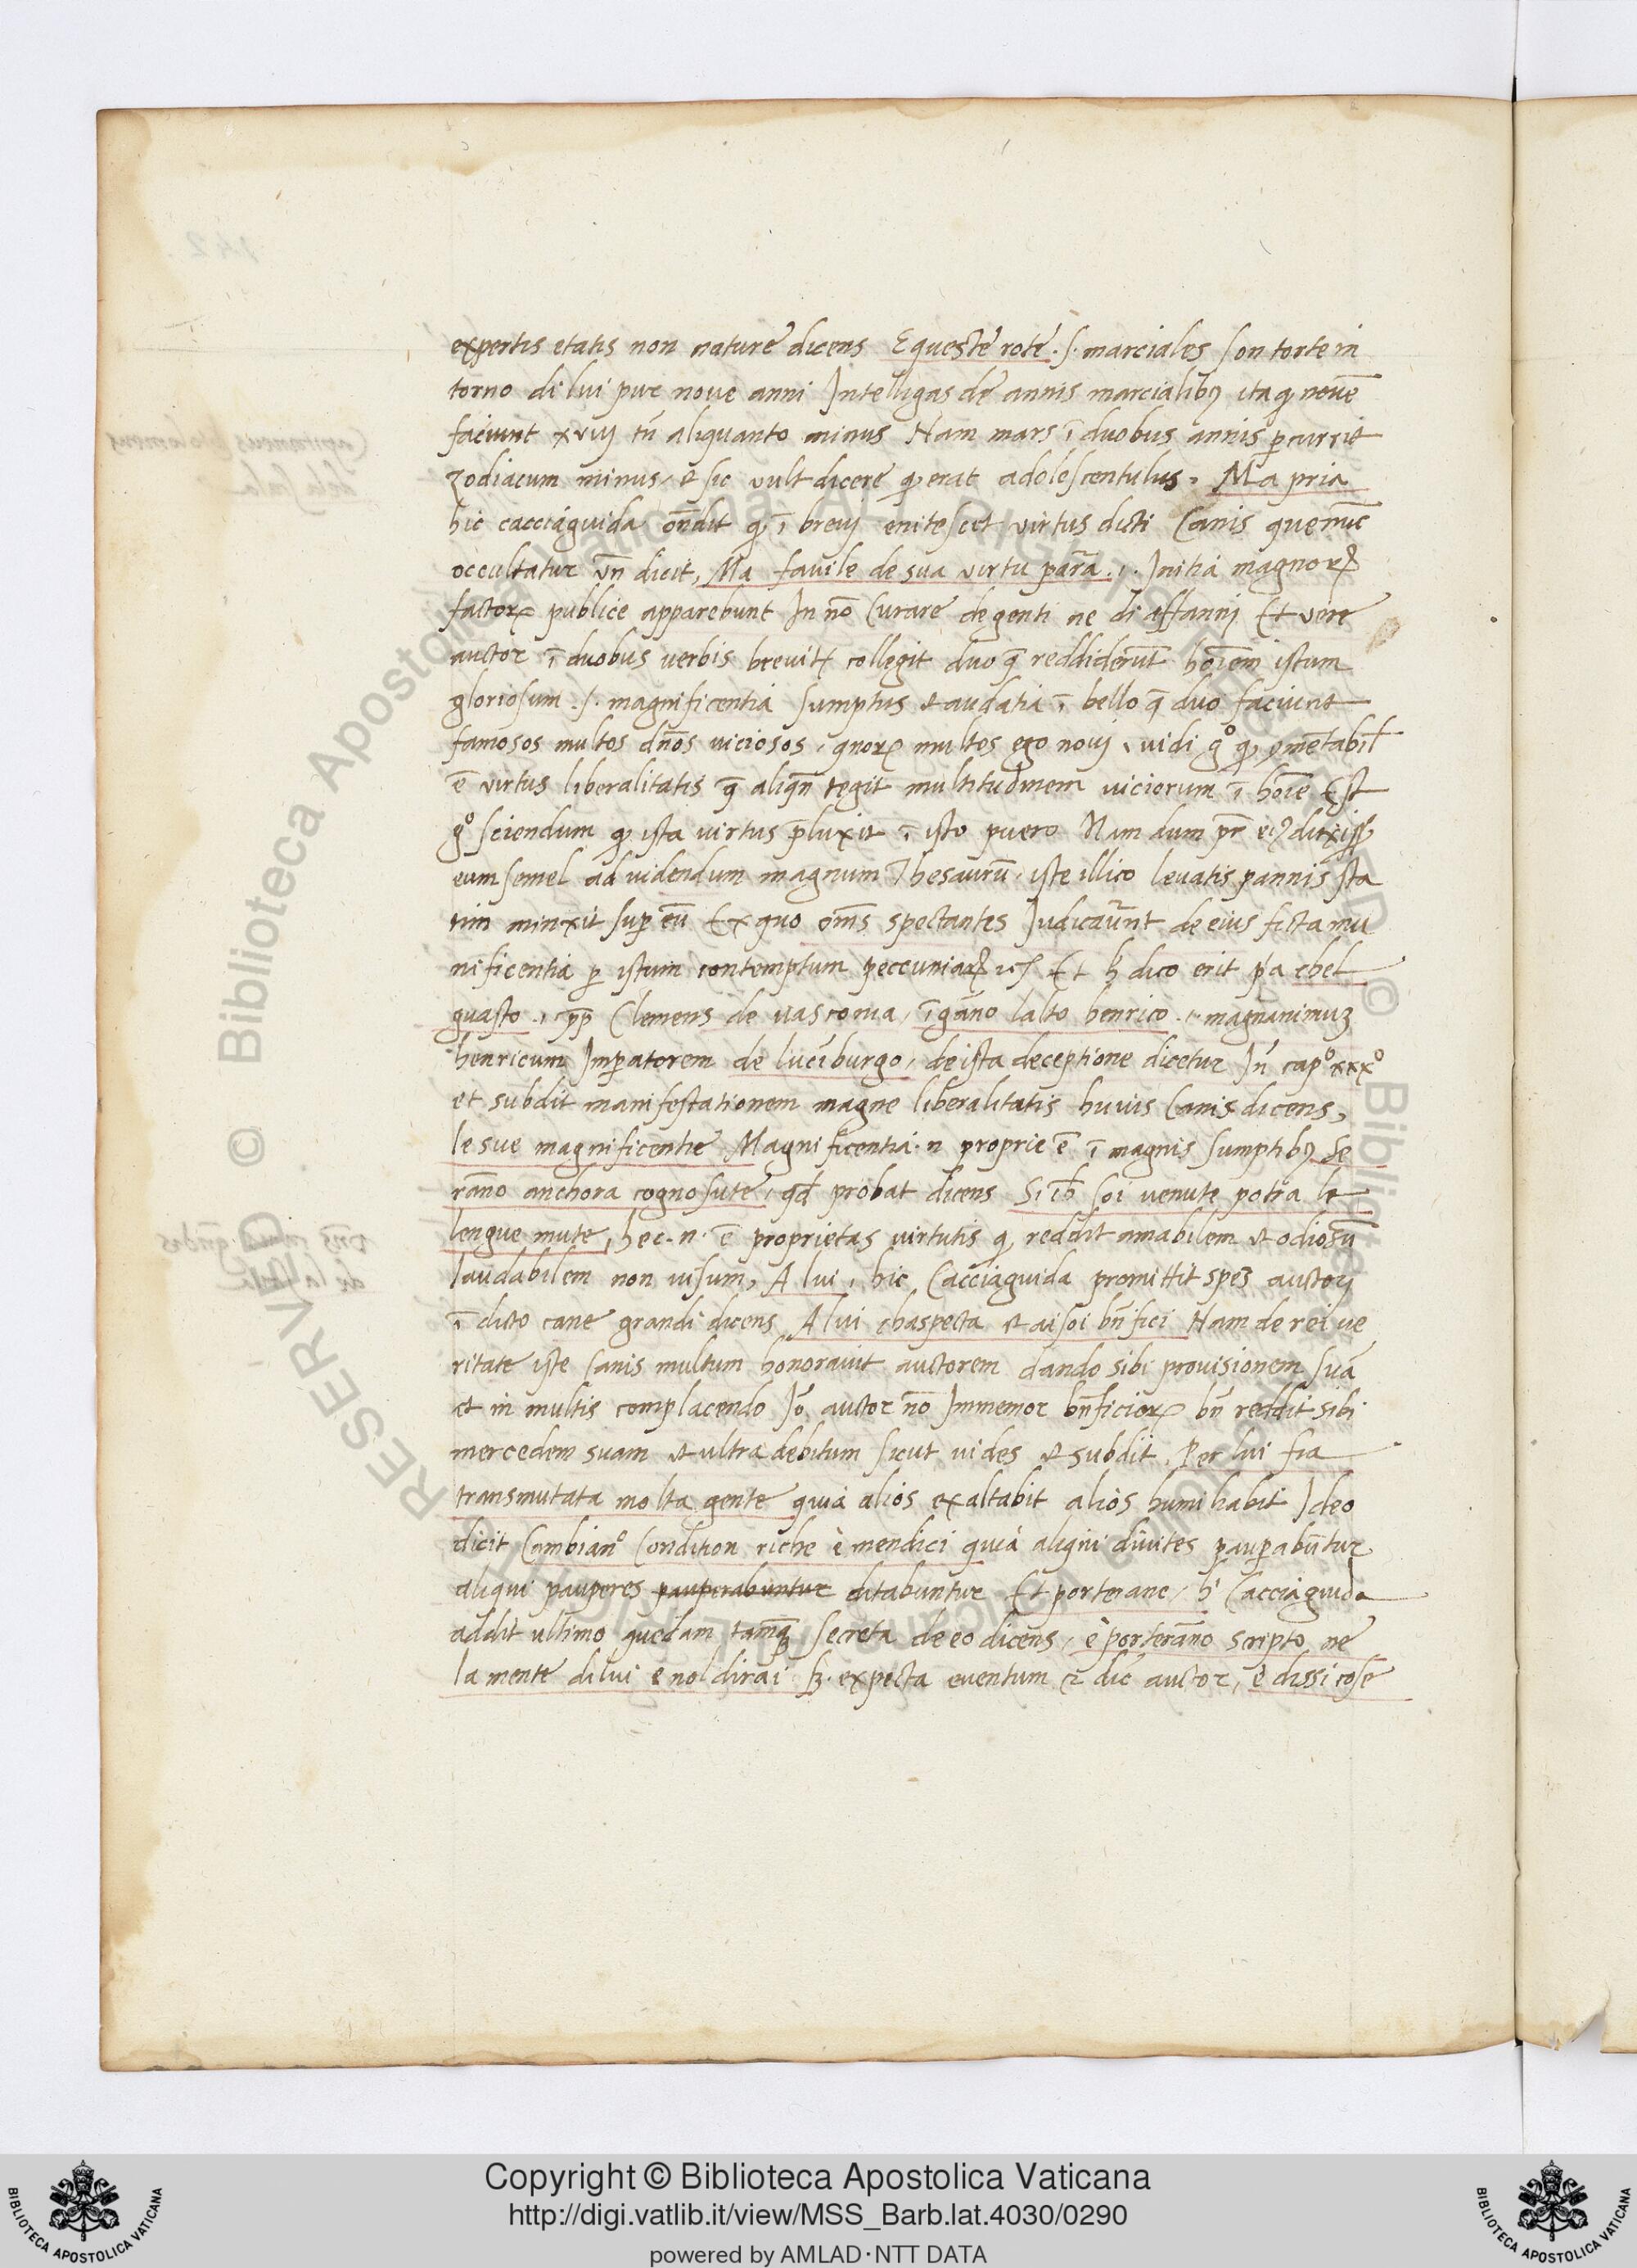 expertis etatis non nature dicens Equeste rote .s. marciales son torte in
torno di lui pur nove anni Intelligas de annis marcialibꝫ ita ꝙ novē
faciunt xviij tn̄ aliquanto minus Nam mars ī duobus annis ꝑcurrit
zodiacum minus, et sic vult dicere ꝙ erat adolescentulus. Ma pria
hic cacciaguida on̄dit ꝙ ī brevi enitescet virtus dicti Canis que nūc
occultatur un̄ dicit, Ma favile de sua virtu parrà .i. Initia magnoꝝ
factoꝝ publice apparebunt In nō Curare de genti ne di affanni Et vere
auctor ī duobus verbis brevitꝭ collegit duo q̄ reddiderūt hoīem istum
gloriosum .s. magnificentia sumptus et audatia ī bello q̄ duo faciunt
famosos multos dn̄os viciosos, quoꝝ multos ego novi, vidi gͦ ꝙ
ē virtus liberalitatis q̄ aliqn̄ tegit multitudinem viciorum ī hoīe Est
gͦ sciendum ꝙ ista virtus p̄luxit ī isto puero Nam dum pr̄ eiꝰ duxisset
eum semel ad videndum magnum Thesaurū, iste illico levatis pannis sta
tim minxit suꝑ eū Ex quo om̄s spectantes Judicaūnt de eius ficta mu
nificentia ꝑ istum contemptum peccuniaꝝ Et dico erit pͥa chel
guasto .i. pp̄ Clemens de vasconia, īganno lalto henrico .i. magnanimuꝫ
henricum Imꝑatorem de luciburgo, de ista deceptione dicetur In̄ capͦ xxxͦ
et subdit manifestationem magne liberalitatis huius Canis dicens,
le sue magnificentie Magnificentia .n. proprie ē ī magnis sumptibꝫ Se
ranno anchora cognosute, qd̄ probat dicens Si soi venute potra le
lengue mute, hec .n. ē proprietas virtutis ꝙ reddit amabilem et odiosū
laudabilem non visum, A lui, hic Cacciaguida promittit speꝫ auctori
ī dicto cane grandi dicens A lui thaspecta et ai soi bn̄fici Nam de rei ve
ritate iste Canis multum honoravit auctorem dando sibi provisionem suā
et in multis complacendo Iō auctor nō Immemor bn̄ficioꝝ bn̄ reddit sibi
mercedem suam et ultra debitum sicut vides et subdit. Per lui fia
transmutata molta gente quia alios exaltabit alios humiliabit Ideo
dicit Cambianͦ Condition riche e mendici quia aliqui divites pauꝑabūtur
aliqui pauperes pauperabuntur ditabuntur Et porterane, hͥ Cacciaguida
addit ultimo quedam tamꝗ̄ secreta de eo dicens, e porteranno scripto ne
la mente di lui e nol dirai sꝫ expecta eventum et dic̄ auctor, e dissi cose
Copyright © Biblioteca Apostolica Vaticana
http://digi.vatlib.it/view/MSS_Barb.lat.4030/0290
powered by AMLAD·NTT DATA
BIBLIOTECA APOSTOLICA VATICANA
BIBLIOTECA APOSTOLICA VATICANA